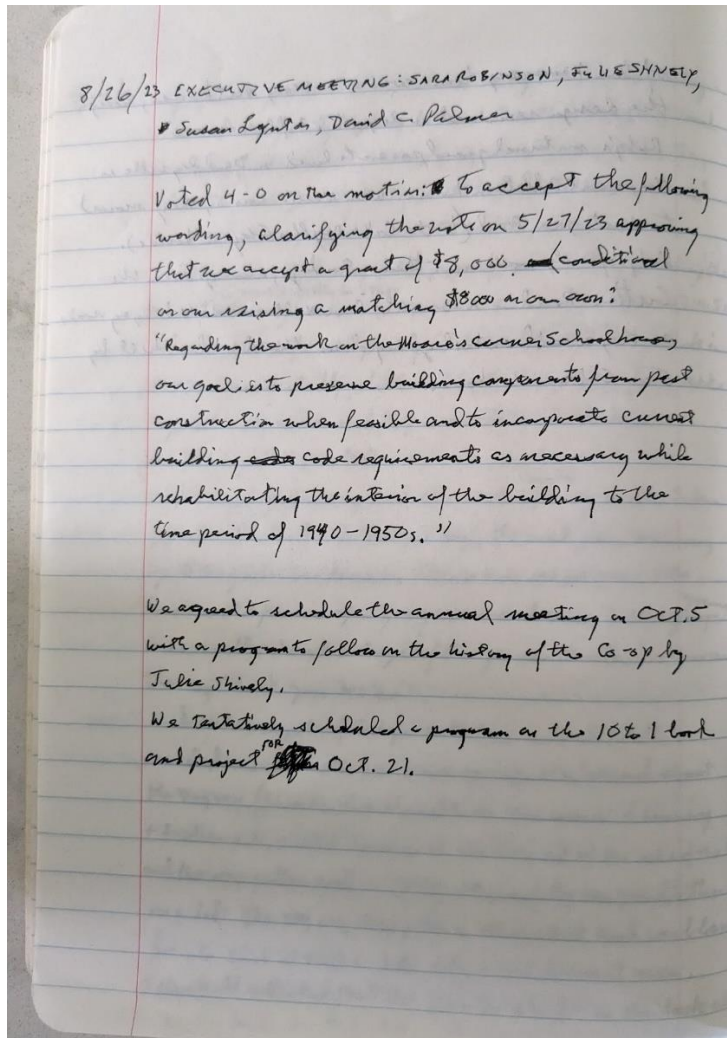 8/26/23 EXECUTIVE MEETING: SARA ROBINSON, JULIE SHIVELY,
Susan Lynton, David C. Palmer
Voted 4-0 on the motion: to accept the following
wording, clarifying the vote on 5/27/23 approving
that we accept a grant of $8,000 conditional
on our raising a matching $8000 on our own:
"Regarding the work on the Moore's Corner Schoolhouse,
our goal is to preserve building components from past
construction when feasible and to incorporate current
building code requirements as necessary while
rehabilitating the interior of the building to the
time period of 1940-1950s."
We agreed to schedule the annual meeting on OCT. 5
with a program to follow on the history of the Co-op by
Julie Shively.
We tentatively scheduled a program on the 10 to 1 book
and project FOR Oct. 21.